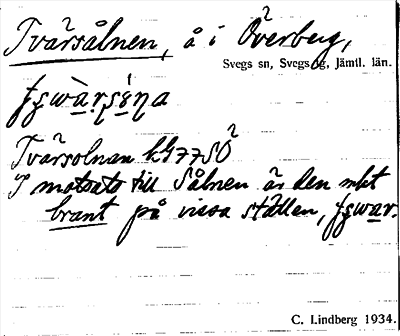 Tvärsålnen, å i Överberg,
Svegs sn, Svegs tg, Jämtl. län.
Tvärsolnan
I motsats till Sålnen är den mkt
brant på vissa ställen,
C. Lindberg 1934.